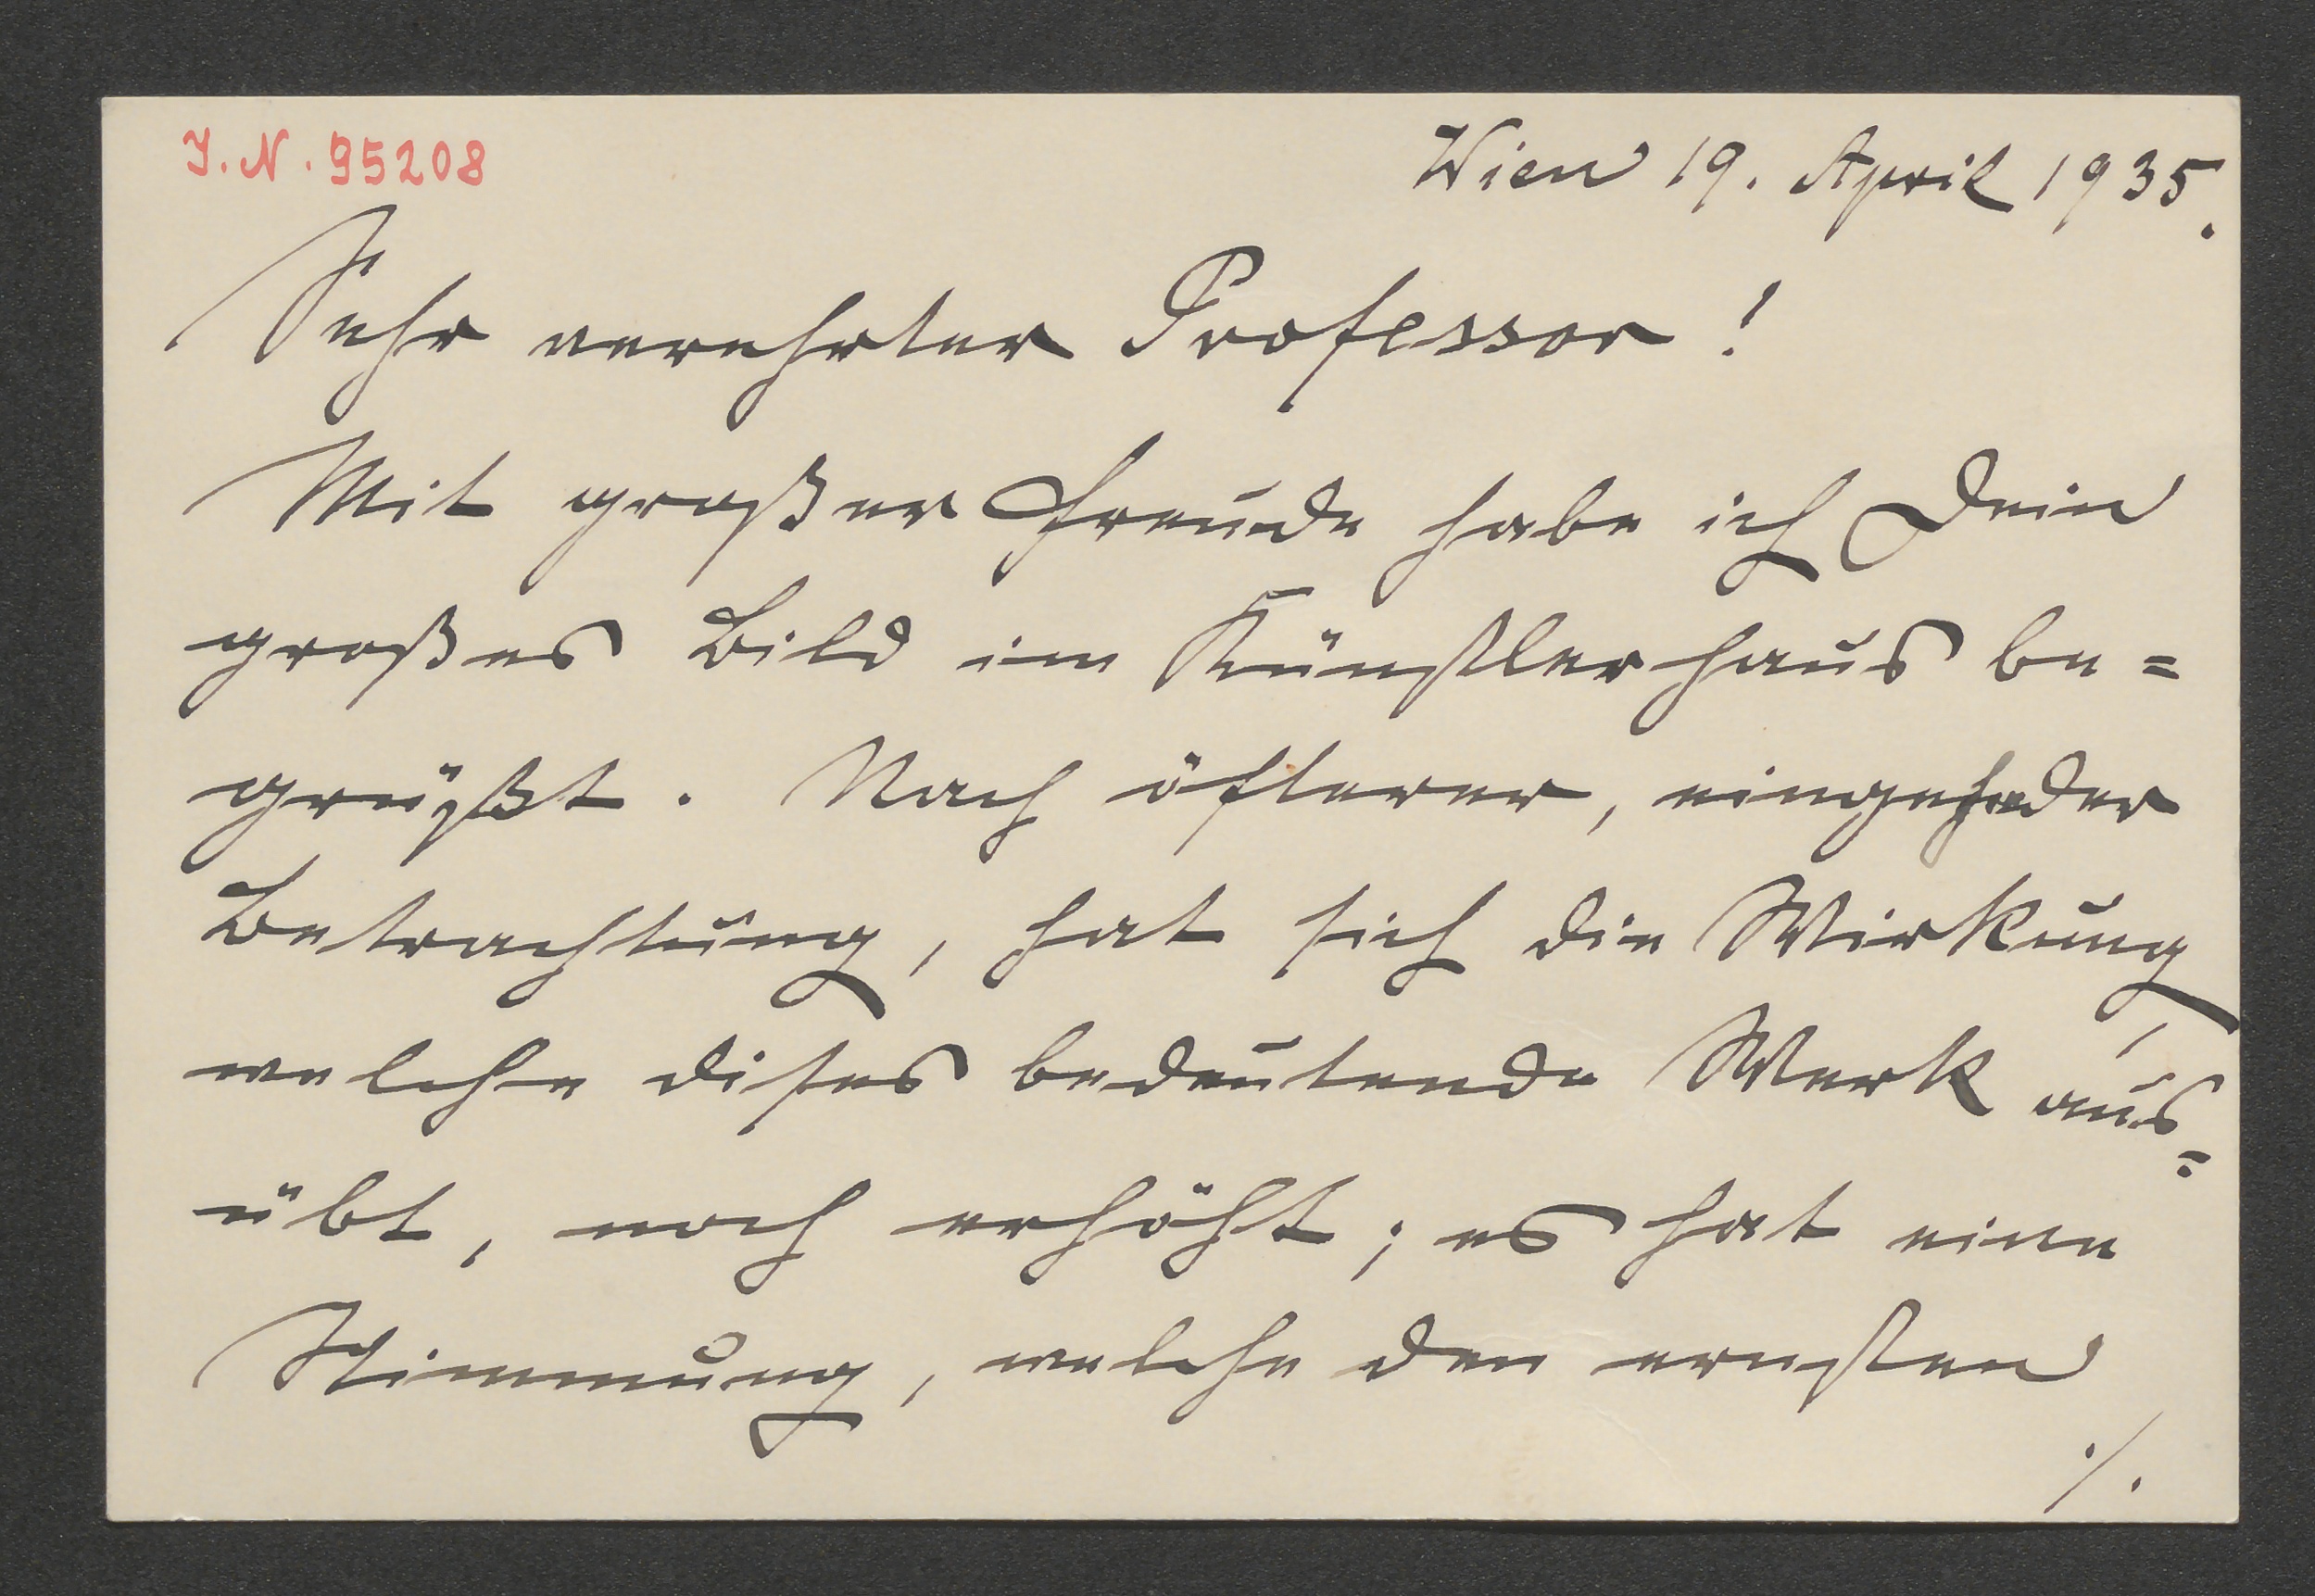 I.N. 95208
Wien 19. April 1935.
Sehr verehrter Professor!
Mit großer Freude habe ich Dein
großes Bild im Künstlerhaus be=
grüßt. Nach öfterer, eingehender
Betrachtung, hat sich die Wirkung,
welche dises bedeutende Werk aus=
übt, noch erhöht; es hat eine
Stimmung, welche den ernsten
./.